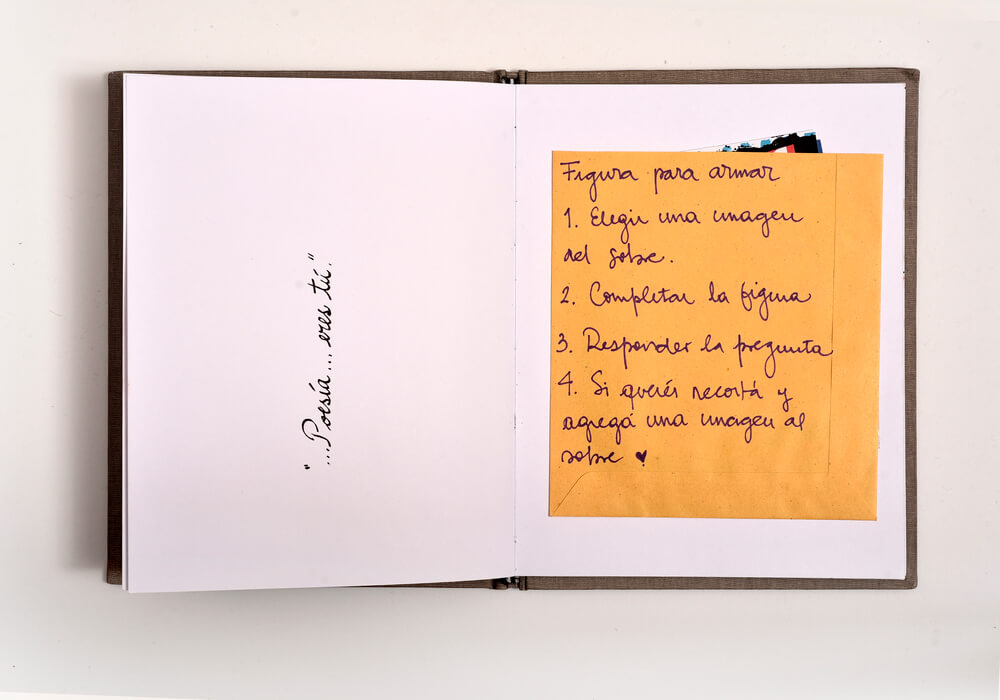 "...Poesía...eres tú."
Figura para armar
1. Elegir una imagen
del sobre.
2. Completar la figura
3. Responder la pregunta
4. Si querés recortá y
agregá una imagen al
sobre ♥